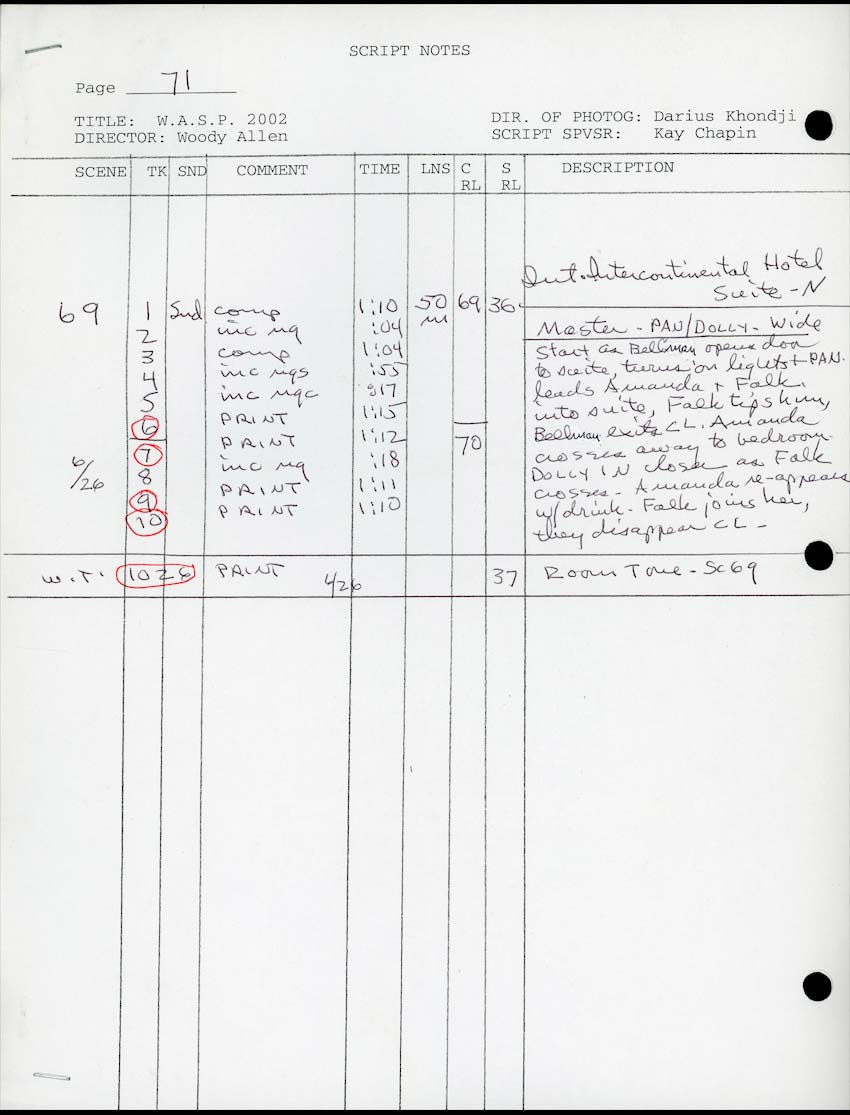 SCRIPT NOTES
Page 71
TITLE: W.A.S.P. 2002
DIRECTOR: Woody Allen
DIR. OF PHOTOG: Darius Khondji
SCRIPT SPVSR: Kay Chapin
SCENE TK SND COMMENT TIME LNS C RL S RL DESCRIPTION
Int. Intercontinental Hotel
Suite - N
69 1 Snd comp 1:10 50 69 36
2 inc ng :04
3 comp 1:04
4 inc ngs :55
5 inc ngc :17
6 PRINT 1:15
7 PRINT 1:12 70
8 inc ng :18
9 PRINT 1:11
10 PRINT 1:10
6/26
Master - PAN/DOLLY - Wide
Start as Bellman opens door
to suite, turns on lights + PAN.
leads Amanda + Falk
into suite, Falk tips him,
Bellman exits CL. Amanda
crosses away to bedroom.
DOLLY IN closer as Falk
crosses - Amanda re-appears
w/drink. Falk joins her,
they disappear CL -
W.T. 1026 PRINT 4/26 37 Room Tone - Sc 69